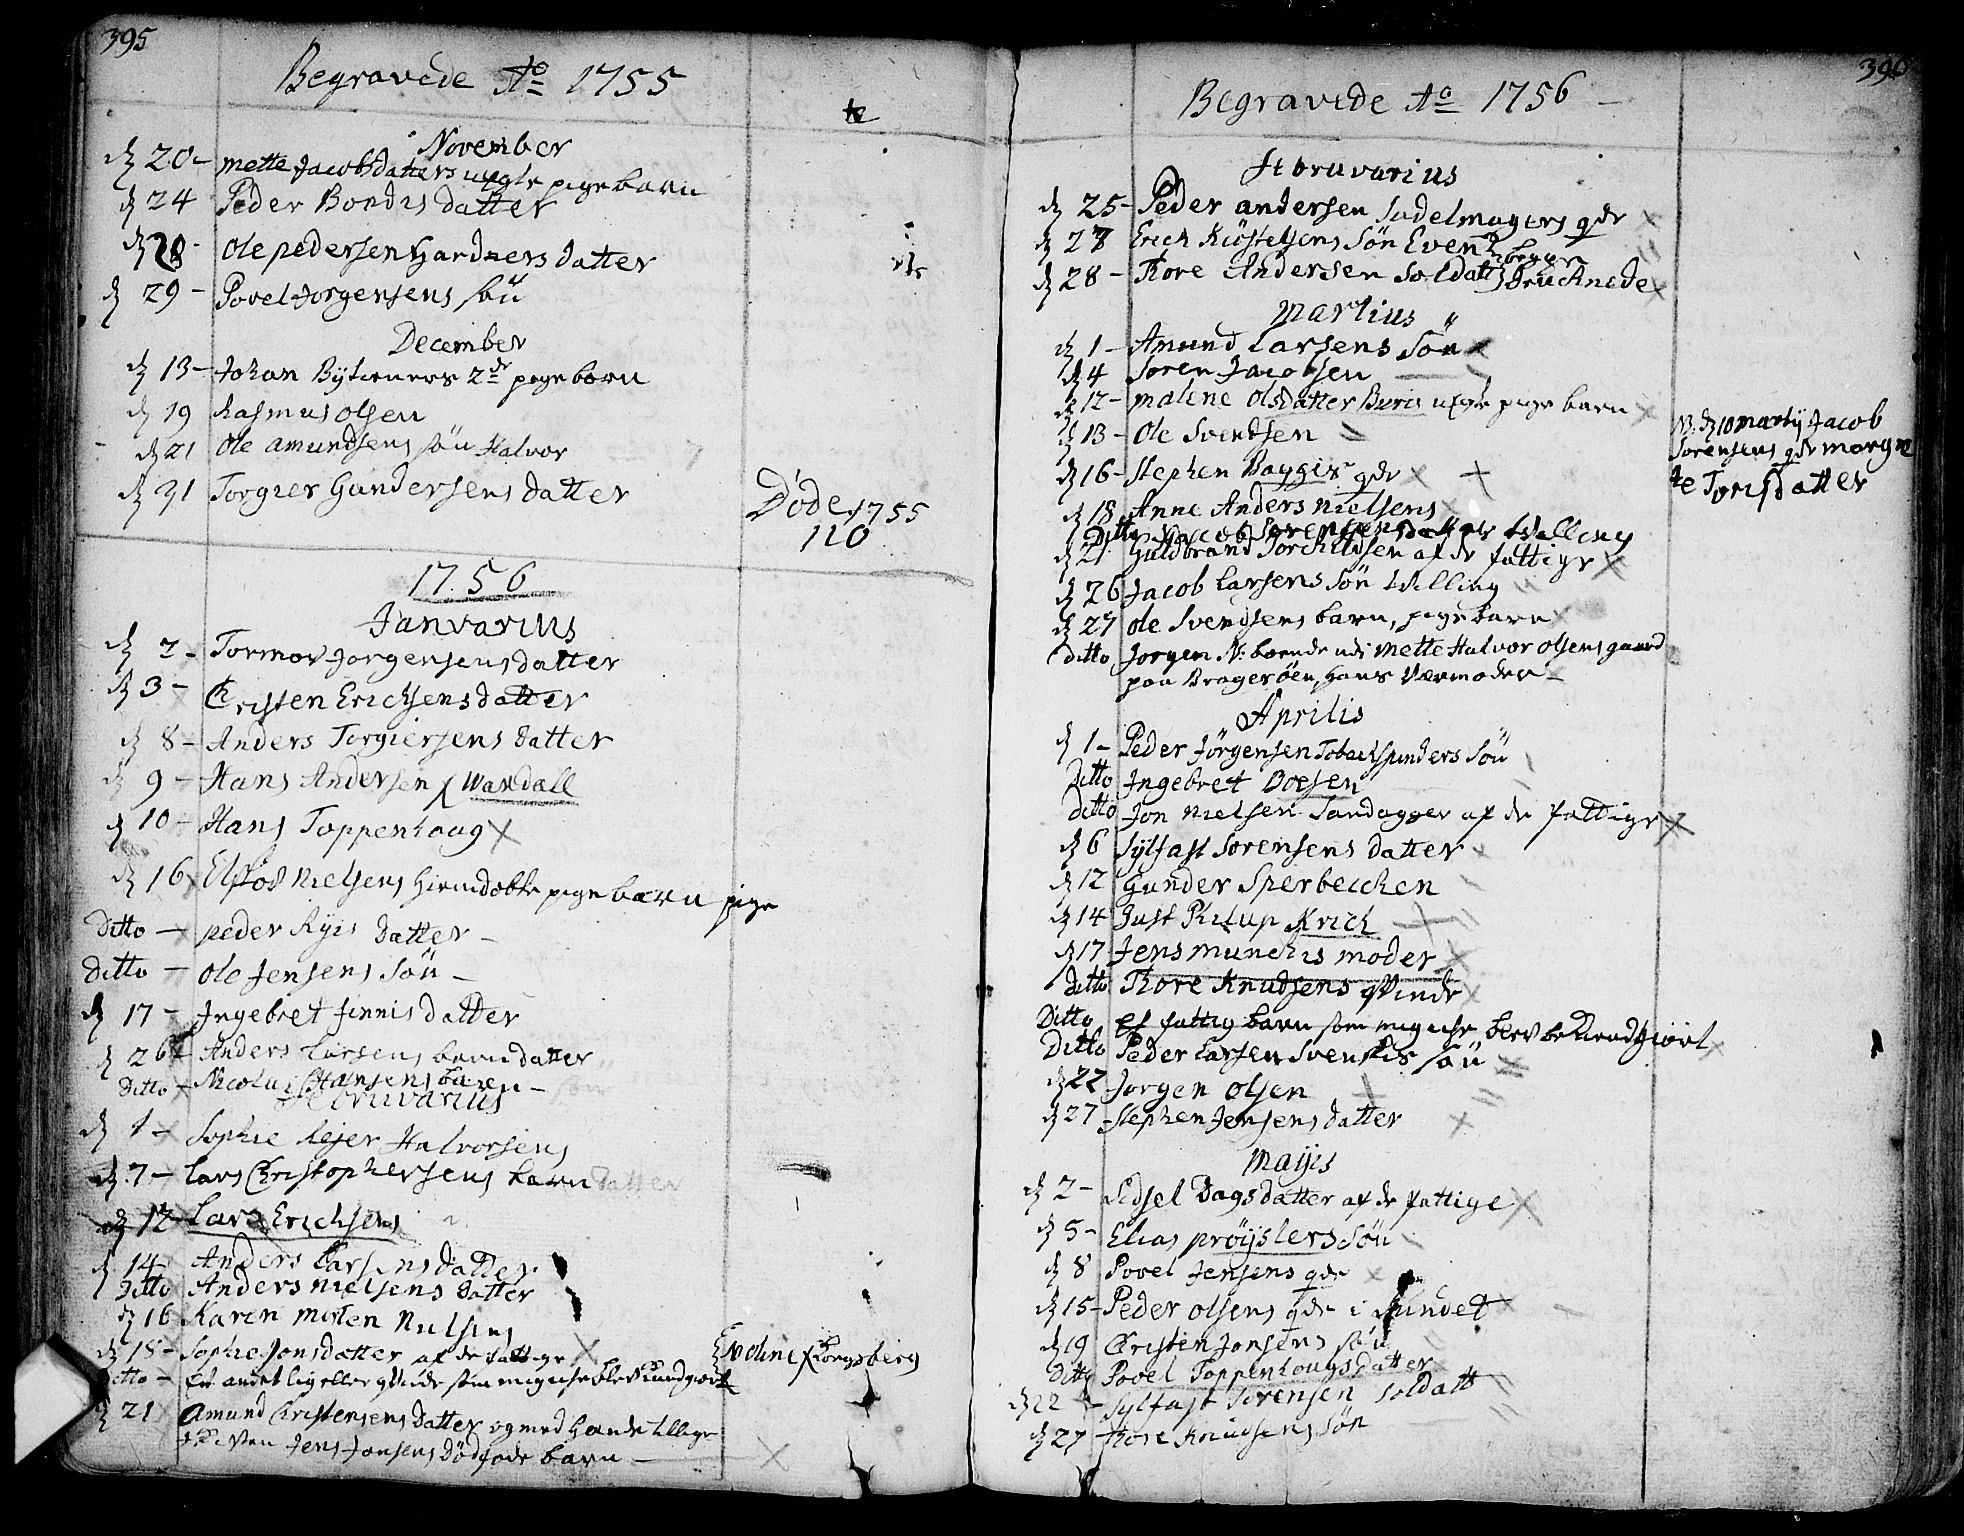 395
Begravede Ao 1755
November
d 20- Mette Jacobsdatters uegte pigebarn
d 24 Peder Bondis datter
d 28- Ole Pedersen Gardners datter
d 29- Povel Jorgensens sön
December
d 13- Johan Bytteners 2de pigebarn
d 19 Rasmus Olsen
d 21 Ole Amundsens sön Halvor
d 31 Torgier Gundersens datter
Döde 1755
110
1756
Janvarius
d 2- Tormor Jorgensens datter
d 3- Christen Erichsens datter
d 8- Anders Torgiersens datter
d 9- Hans Andersen Wardall
d 10- Hans Toppenhoug
d 16 Nielsens hiemdöbte pigebarn pige
Ditto- peder Ryis datter-
Ditto- Ole Jensens sön-
d 17- Ingebret finnis datter
d 26 Anders Larsens barn datter
Ditto Nicolai Hansens barn-
Februvarius
d 1- Sophie Rejer Halvorsens
d 7- Lars Christophersens barn datter
d 12 Lars Erichsens
d 14- Anders Larsens datter
Ditto Anders Nielsens datter
d 16 Karen Nielsens
d 18- Sophie Jonsdatter af de fattige
Kongsberg
ditto- Et andet lig eller qvinde som mig icke blev kundgiort
d 21 Amund Christensens datter og med hande tillige
Jens Jonsens Dödfode barn-
390
Begravede Ao 1756-
Februvarius
d 25- Peder Andersen Sadelmagers qde
d 27 Erich Kiöstelsens Sön Even
d 28- Tore Andersen Soldatt begge drucknede
Martius
d 1- Amund Larsens Sön
d 4 Soren Jacobsen
d 12- Malene Olsdatter Buris uegte pige barn
d 13- Ole Svendsen
d 16- Stephen Baygis qde
d 18 Anne Anders Nielsens
Ditto Jacob Sorensens datter tvilling
d 21 Guldbrand Torchildsen af de fattige
d 26 Jacob Larsens Sön tvilling
d 27 Ole Svendsens barn, pigebarn
ditto Jorgen N: boende udi Mette Halvor Olsens gaard
paa Brageröen, hans Værmoder-
NB. d 10 Martij Jacob
Sorensens qde Margre
te Torisdatter
Aprilis
d 1- Peder Jörgensen Tobackspinders Sön
Ditto Ingebret Boesen
ditto Jon Nielsen Sandager af de fattige
d 6 Sylfast Sorensens datter
d 12 Gunder Sperbecchen
d 14 Just Philup Krich
d 17 Jens Munchis moder
ditto Thore Knudsens qvinde
Ditto Et fattig barn som mig icke blev bekiendtgiort
Ditto Peder Larsen Svenskis sön
d 22 Jorgen Olsen
d 27- Stephen Jensens datter
Majis
d 2- Sidsel Dagsdatter af de fattige
d 5- Elias pröyslers Sön
d 8 Povel Jensens qde
d 15- Peder Olsens qde i Sundet
d 19 Christen Jonsens sön
ditto Povel Toppenhougs datter
d 22- Sylfast Sorensen Soldatt
d 27 Tore Knudsens sön